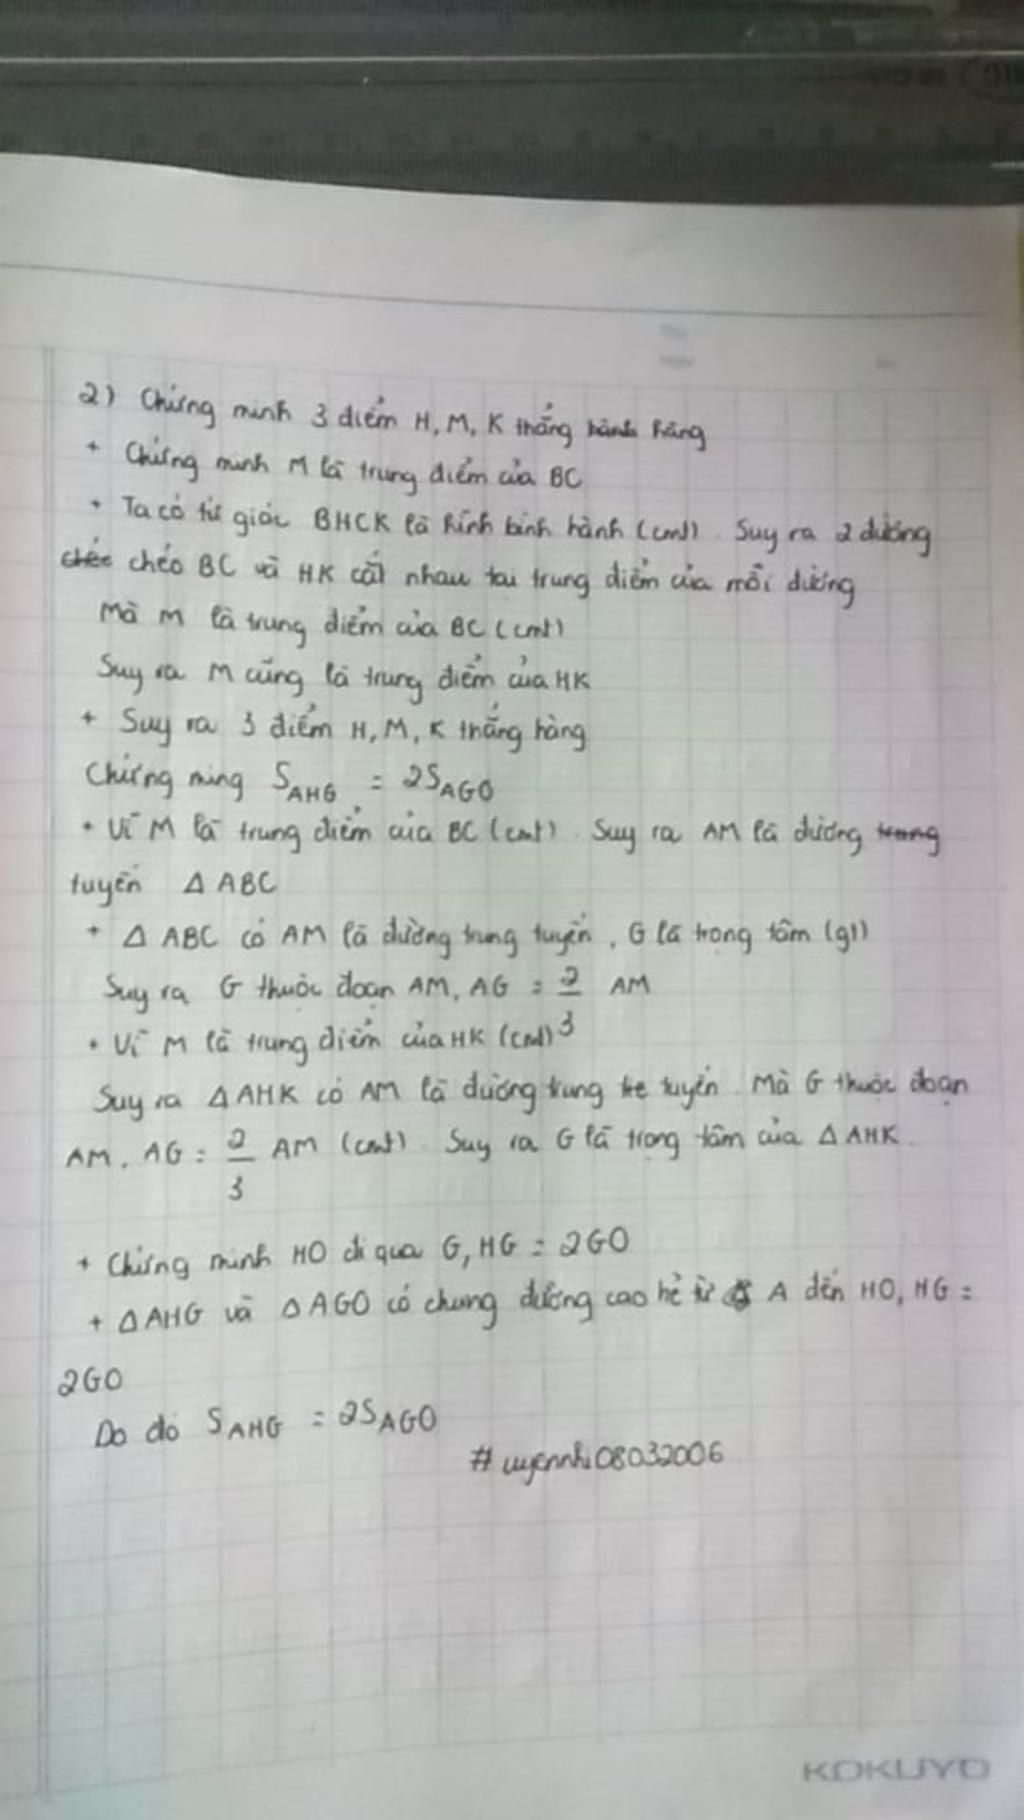 2) Chứng minh 3 điểm H, M, K thẳng hàng
+ Chứng minh M là trung điểm của BC
+ Ta có tứ giác BHCK là hình bình hành (cmt). Suy ra 2 đường
chéo BC và HK cắt nhau tại trung điểm của mỗi đường
Mà M là trung điểm của BC (cmt)
Suy ra M cũng là trung điểm của HK
+ Suy ra 3 điểm H, M, K thẳng hàng
Chứng ming S_AHG = 2S_AGO
+ Vì M là trung điểm của BC (cmt). Suy ra AM là đường trung
tuyến Δ ABC
+ Δ ABC có AM là đường trung tuyến, G là trọng tâm (gt)
Suy ra G thuộc đoạn AM, AG = 2/3 AM
+ Vì M là trung điểm của HK (cmt)
Suy ra Δ AHK có AM là đường trung tuyến. Mà G thuộc đoạn
AM, AG = 2/3 AM (cmt). Suy ra G là trọng tâm của Δ AHK.
+ Chứng minh HO đi qua G, HG = 2GO
+ Δ AHG và Δ AGO có chung đường cao hẻ từ A đến HO, HG =
2GO
Do đó S_AHG = 2S_AGO
# uyennhi08032006
KOKUYO